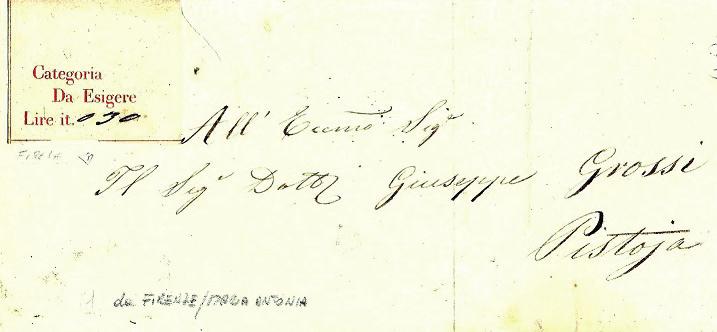 Categoria
Da Esigere
Lire it. 030
All' Eccmo Sigr
Il Sigr Dottr Giuseppe Grossi
Pistoja
da FIRENZE/MARIA ANTONIA